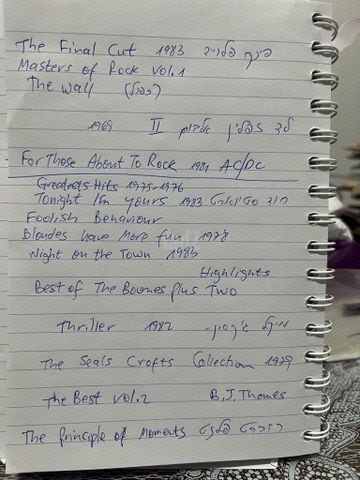 The Final Cut 1983 פינק פלויד
Masters of Rock vol.1
The Wall (כפול)
לד זפלין אלבום II 1969
For Those About To Rock 1981 AC/DC
Greatests Hits 1975-1976
Tonight I'm yours 1983 רוד סטיוארט
Foolish Behaviour
Blondes have More fun 1978
Night on the Town 1983
Highlights
Best of The Bournes Plus Two
Thriller 1982 מייקל ג'קסון
The Seals Crofts Collection 1979
The Best vol.2 B.J. Thomes
The Principle of Moments רוברט פלנט